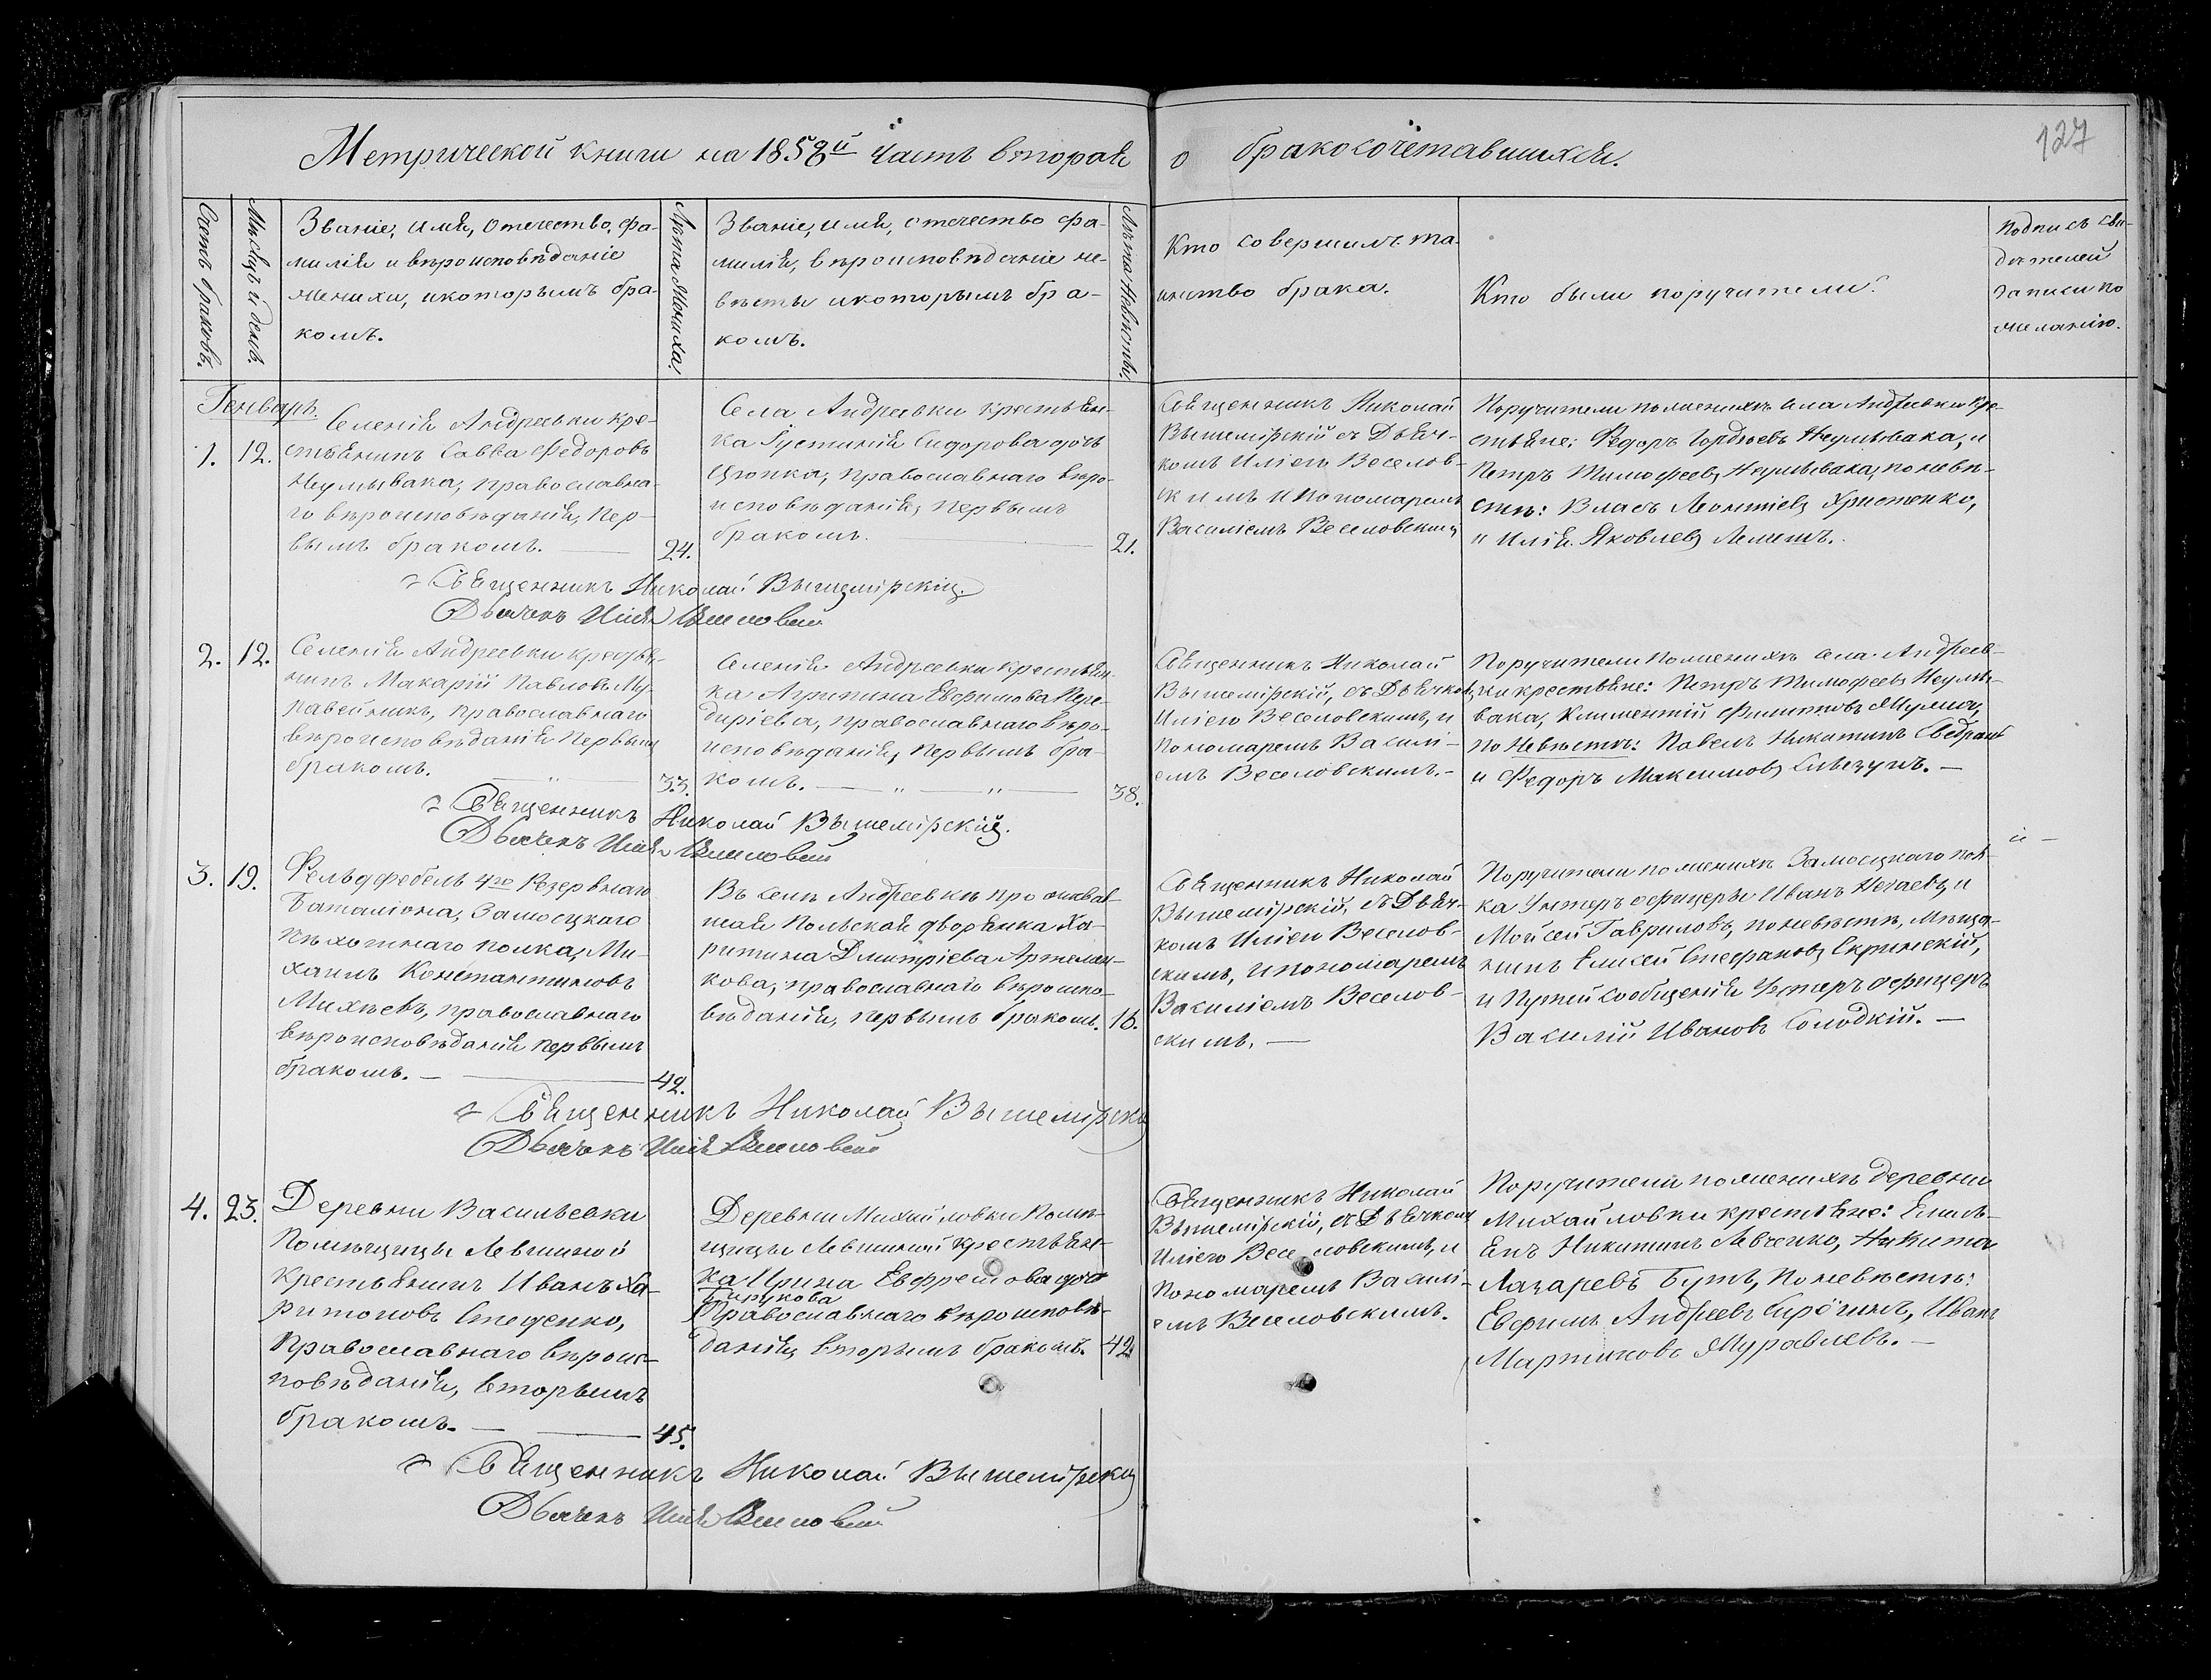 Метрической книги на 1858й Часть вторая о бракосочетавшихся.
127
Счетъ браковъ.
Мѣсяцъ и день.
Званіе, имя, отечество, фа-
милія и вѣроисповѣданіе
жениха, и которымъ бра-
комъ.
Лѣта Жениха.
Званіе, имя, отечество фа-
милія, вѣроисповѣданіе не-
вѣсты и которымъ бра-
комъ.
Лѣта Невѣсты.
Кто совершилъ та-
инство брака.
Кто были поручители?
Подпись сви-
дѣтелей
записи по
желанію.
Генварь.
1. 12.
Селенія Андреевки кре-
стьянинъ Савва Федоровъ
Неумывака, православна-
го вѣроисповѣданія, пер-
вымъ бракомъ.
24.
Села Андреевки крестьян-
ка Іустинія Сидорова дочь
Цюпка, православнаго вѣро-
исповѣданія, первымъ
бракомъ.
21.
Священникъ Николай
Вышемірскій съ Дьяч-
комъ Иліею Веселов-
скимъ и Пономаремъ
Василіемъ Веселовскимъ
Поручители по женихѣ села Андреевки кре-
стьяне: Федоръ Гордѣевъ Неумывака, и
Петръ Тимофеевъ Неумывака, по невѣ-
стѣ: Власъ Леонтіевъ Христенко,
и Илія Яковлевъ Лемешъ.
Священникъ Николай Вышемірскій.
Дьячекъ Илія Веселовскій
2. 12.
Селенія Андреевки крестья-
нинъ Макарій Павловъ Му-
равейникъ, православнаго
вѣроисповѣданія первымъ
бракомъ.
33.
Селенія Андреевки крестьян-
ка Агрипина Евфимова Пере-
диріева, православнаго вѣро-
исповѣданія, первымъ бра-
комъ.
38.
Священникъ Николай
Вышемірскій, съ Дьячкомъ
Иліею Веселовскимъ, и
Пономаремъ Василі-
емъ Веселовскимъ.
Поручители по женихѣ села Андреев-
ки крестьяне: Петръ Тимофеевъ Неумы-
вака, Климентій Филиповъ Жулий,
по Невѣстѣ: Павелъ Никитинъ
и Федоръ Максимовъ Слѣзунъ.
Священникъ Николай Вышемірскій.
Дьячекъ Илія Веселовскій
3. 19.
Фельдфебель 4го Резервнаго
Баталіона, Замосцкаго
пѣхотнаго полка, Ми-
хаилъ Константиновъ
Михѣевъ, православнаго
вѣроисповѣданія первымъ
бракомъ.
42.
Въ селѣ Андреевкѣ проживав-
шая Польская дворянка Ха-
ритина Дмитріева Артелан-
кова, православнаго вѣроиспо-
вѣданія, первымъ бракомъ.
16.
Священникъ Николай
Вышемірскій, съ Дьяч-
комъ Иліею Веселов-
скимъ, и пономаремъ
Василіемъ Веселов-
скимъ.
Поручители по женихѣ Замосцкаго пол-
ка Унтеръ офицеры Иванъ Нечаевъ, и
Мойсей Гавриловъ, по невѣстѣ, Мѣща-
нинъ Елисей Стефановъ Скринскій,
и Путей сообщенія Унтеръ офицеръ
Василій Ивановъ Солодкій.
Священникъ Николай Вышемірскій
Дьячекъ Илія Веселовскій
4. 23.
Деревни Васильевки
Помѣщицы Левшиной
Крестьянинъ Иванъ Ха-
ритоновъ Стеценко,
Православнаго вѣроис-
повѣданія, вторымъ
бракомъ.
45.
Деревни Михайловки Помѣ-
щицы Левшиной крестьян-
ка Ирина Евфремова дочь
Бирукова
Православнаго вѣроисповѣ-
данія, вторымъ бракомъ.
42.
Священникъ Николай
Вышемірскій, съ Дьячкомъ
Иліею Веселовскимъ, и
Пономаремъ Василі-
емъ Веселовскимъ.
Поручители по женихѣ деревни
Михайловки крестьяне: Емель-
янъ Никитинъ Левченко, Никита
Лазаревъ Бутъ, По невѣстѣ:
Евфимъ Андреевъ Сирочинъ, Иванъ
Мартиновъ Журавлевъ.
Священникъ Николай Вышемірскій
Дьячекъ Илія Веселовскій